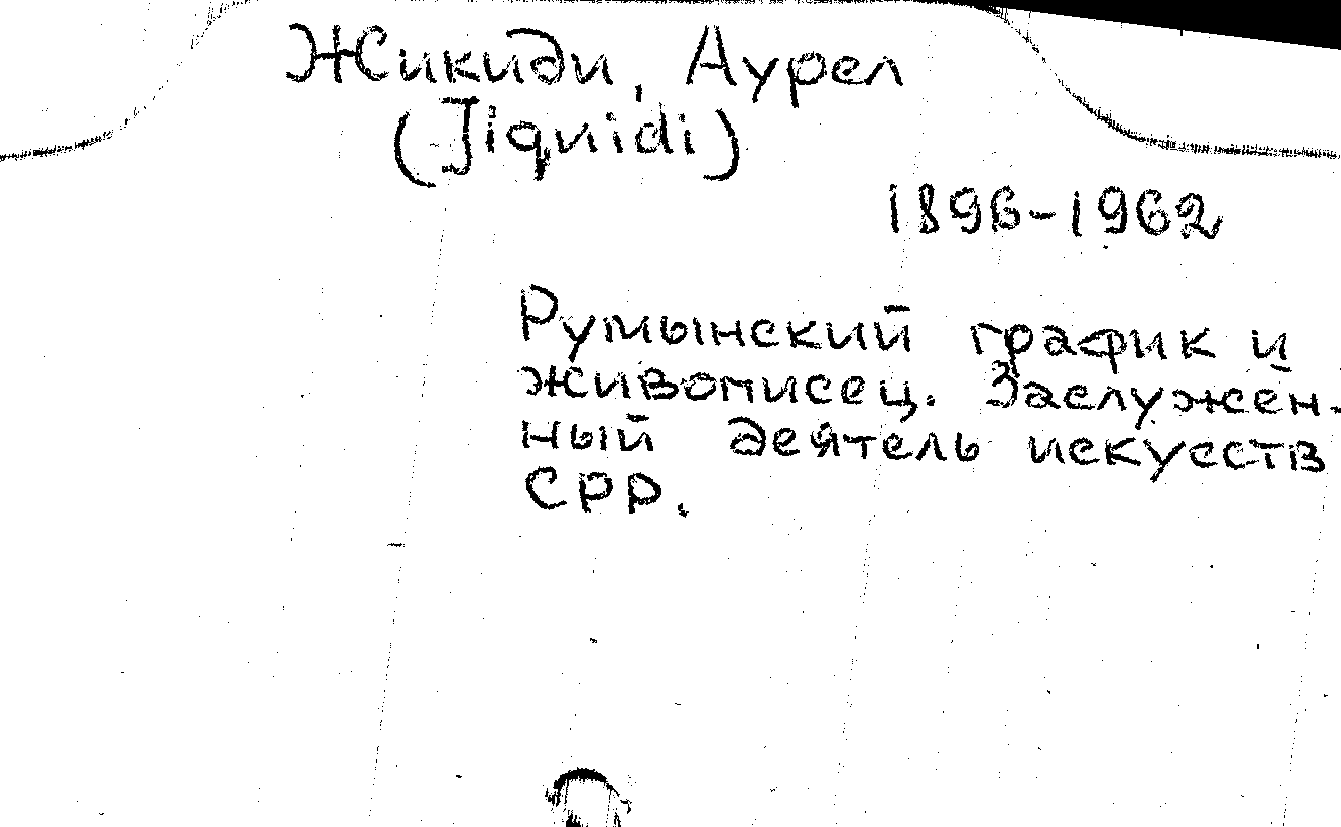 Жикиди, Аурел
(Jiquidi)
1896-1962
Румынский график и
живописец. Заслужен-
ный деятель искусств
СРР.